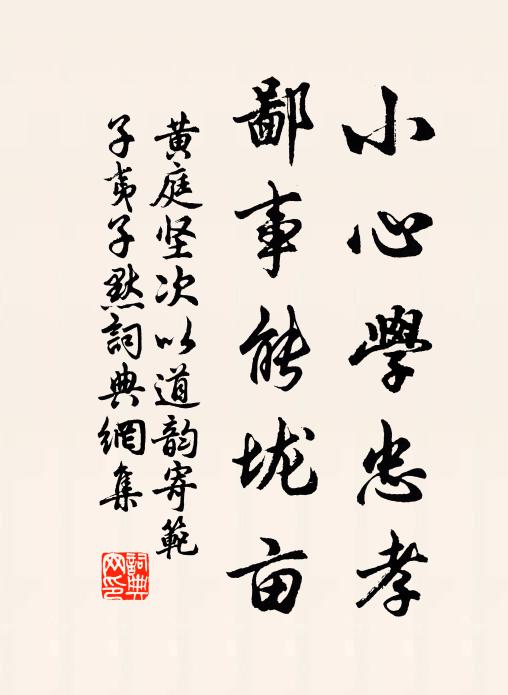 小心學忠孝
鄙事能垅亩
黄庭坚次以道韵寄範
子夷子默詞典網集
詞典網印